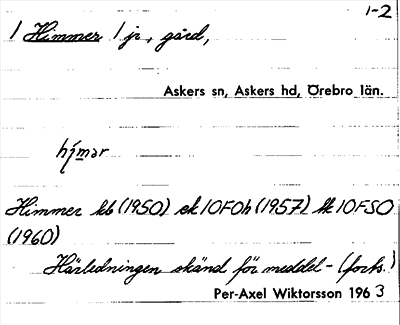 1-2
/ Himmer / jr, gård,
Askers sn, Askers hd, Örebro län.
hímər
Himmer kb (1950) ek 10F0h (1957) tk 10FSO
(1960)
Härledningen okänd för meddel- (forts.)
Per-Axel Wiktorsson 1963